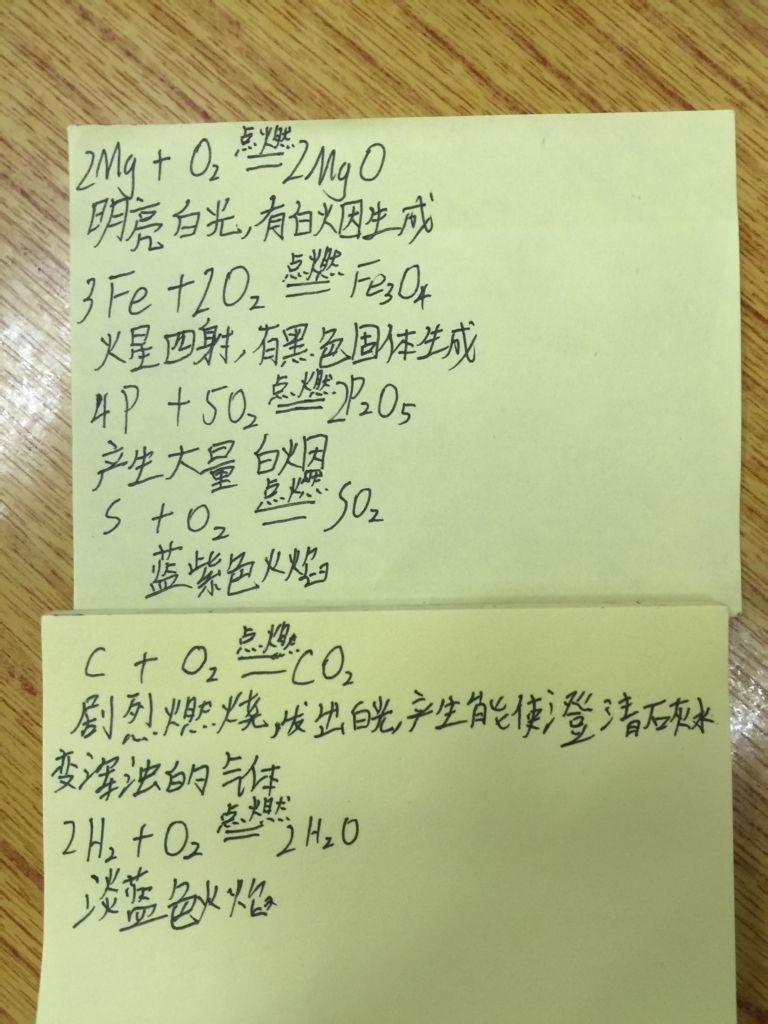 2Mg + O₂ 点燃 = 2MgO
明亮白光,有白烟生成
3Fe + 2O₂ 点燃 = Fe₃O₄
火星四射,有黑色固体生成
4P + 5O₂ 点燃 = 2P₂O₅
产生大量白烟
S + O₂ 点燃 = SO₂
蓝紫色火焰
C + O₂ 点燃 = CO₂
剧烈燃烧,发出白光,产生能使澄清石灰水
变浑浊的气体
2H₂ + O₂ 点燃 = 2H₂O
淡蓝色火焰